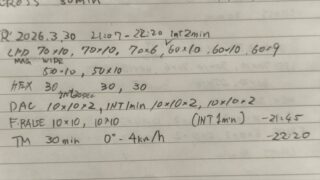 CROSS 30min
2026.3.30 21:07-22:20 Int 2min
LPD 70×10, 70×10, 70×6, 60×10, 60×10, 60×9
MAG WIDE
50×10, 50×10
HEX 30 30, 30
Int 20sec
DAC 10×10×2, INT1min 10×10×2, 10×10×2
F.RAISE 10×10, 10×10 (INT 1min) -21:45
TM 30min 0° - 4km/h -22:20